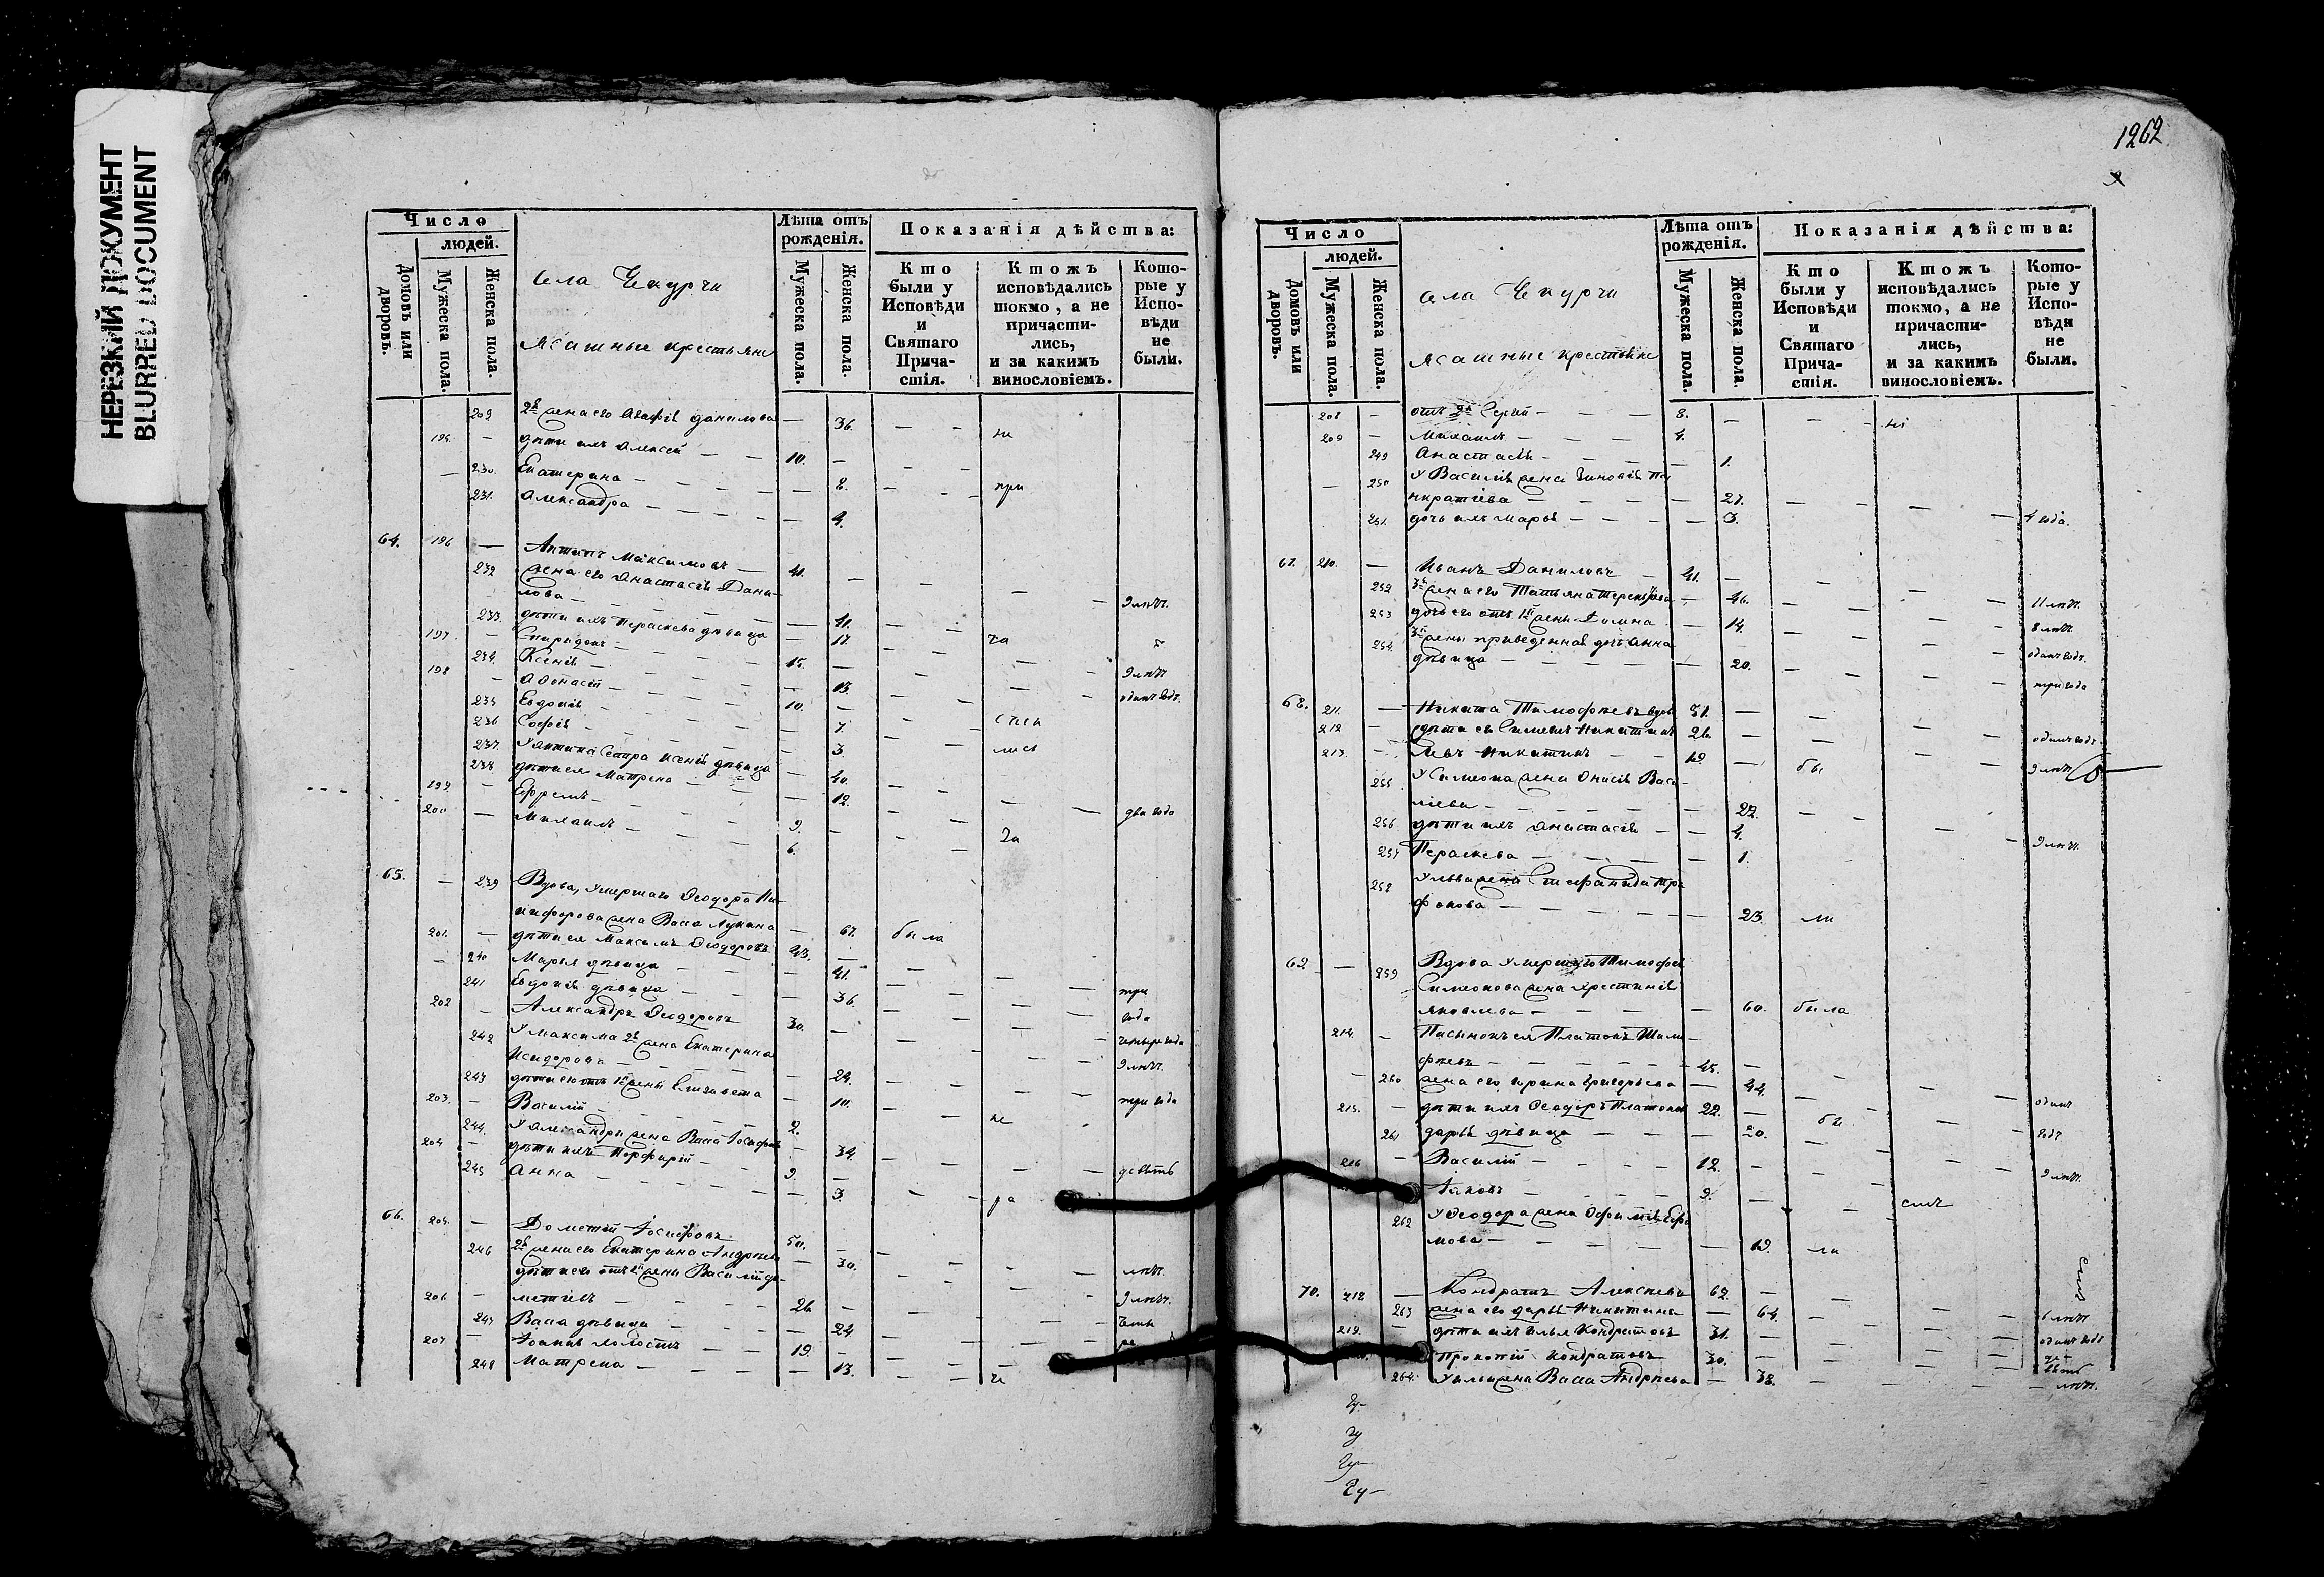 НЕРЕЗКИЙ ДОКУМЕНТ
BLURRED DOCUMENT
Число
людей.
Домовъ или дворовъ.
Мужеска пола.
Женска пола.
села Чекурчи
Ясашные крестьяне
Лѣта отъ рожденія.
Мужеска пола.
Женска пола.
Показанія дѣйства:
Кто были у Исповѣди и Святаго Причастія.
Ктожъ исповѣдались токмо, а не причастились, и за какимъ винословіемъ.
Которые у Исповѣди не были.
жена его Агафія Данилова — 36.
195. — дѣти ихъ Алексей — — 10. —
— 230. Екатерина — — — 8.
231. Александра — — — 4.
64. 196 — Антипъ Максимовъ — 41. —
232 жена его Анастасія Дани-
лова — — — 41. 9 лѣтъ.
233. дѣти ихъ Параскева дѣвица — 17.
197. — Спиридонъ — 15. — 9 лѣтъ
234. Ксенія — — 13. одинъ годъ.
198 — Афонасій — 10. —
235 Евдокія — — 7.
236 Софія — — 3.
237. У Антипа сестра Ксенія дѣвица — 40. два года
238 дѣти ея Матрена — — 12.
199 — Ефремъ — 9. —
200 — Михаилъ — 6.
65. — 239 Вдова, умершаго Ѳеодора Ни-
кифорова жена Васса Лукина — 67. была
201. — дѣти ея Максимъ Ѳеодоровъ 43. —
— 240 Марья дѣвица — — 41. три
241 Евдокія дѣвица — — 36. года
202 — Александръ Ѳеодоровъ 30. — четыре года
242 У Максима 2я жена Екатерина
Исидорова — — 24. 9 лѣтъ.
243 дѣти его отъ 1й жены Елизавета — 10. три года
203. — Василій — 2.
244. У Александра жена Васса Іосифова — 34. девять
204 — дѣти ихъ Порфирій — 9. —
245 Анна — — 3.
66. 205. — Дометій Іосифовъ 50. —
246 2я жена его Екатерина Андреева — 30. лѣтъ.
дѣти его отъ 1й жены Василій До-
206. — метіевъ — 26. — 9 лѣтъ.
247 Васса дѣвица — — 24
207. — Іоаннъ холостъ — 19. —
248 Матрена — — 13.
1262
Число
людей.
Домовъ или дворовъ.
Мужеска пола.
Женска пола.
села Чекурчи
Ясашные крестьяне
Лѣта отъ рожденія.
Мужеска пола.
Женска пола.
Показанія дѣйства:
Кто были у Исповѣди и Святаго Причастія.
Ктожъ исповѣдались токмо, а не причастились, и за какимъ винословіемъ.
Которые у Исповѣди не были.
208 — Сергій — 8. —
209 — Михаилъ — 4.
249 Анастасія — — 1.
250 У Василія жена Зиновія Па-
нкратіева — — 27.
251. дочь ихъ Марья — — 3. 4 года.
67. 210. — Иванъ Даниловъ — 41. —
252 3я жена его Татьяна Терентьева — 46. 11 лѣтъ.
253 дочь его отъ 1й жены Домна — 14. 8 лѣтъ.
254. 3й жены приведенная дочь Анна одинъ годъ.
дѣвица — — 20. три года
68. 211. — Никита Тимофѣевъ вдовъ 51. —
212 — дѣти его Симеонъ Никитинъ 26. — одинъ годъ
213. — Левъ Никитинъ — 19. — 9 лѣтъ
255 У Симеона жена Онисія Васи-
ліева — — 22.
256 дѣти ихъ Анастасія — — 4. 9 лѣтъ.
257 Параскева — — 1.
258 У Льва жена Стефанида Три-
фонова — — 23. ли
69. — 259 Вдова умершаго Тимофея
Симеонова жена Христинія
Яковлева — — 60. была
214. — Пасынокъ ея Платонъ Тимо-
фѣевъ — 45. —
260 жена его Ирина Григорьева — 44. одинъ
215. — дѣти ихъ Ѳеодоръ Платоновъ 22. — бы годъ
261 Дарья дѣвица — — 20.
216 — Василій — 12. — 9 лѣтъ.
Іаковъ — 9. —
262 У Ѳеодора жена Ефимія Ефи-
мова — — 19. ли
70. 218 — Кондратъ Алексѣевъ 62. —
263 жена его Дарья Никитина — 64. 6 лѣтъ
219. — дѣти ихъ Илья Кондратовъ 31. — одинъ годъ
Прокопій Кондратовъ 30. —
264. У Ильи жена Васса Андреева — 38. лѣтъ.